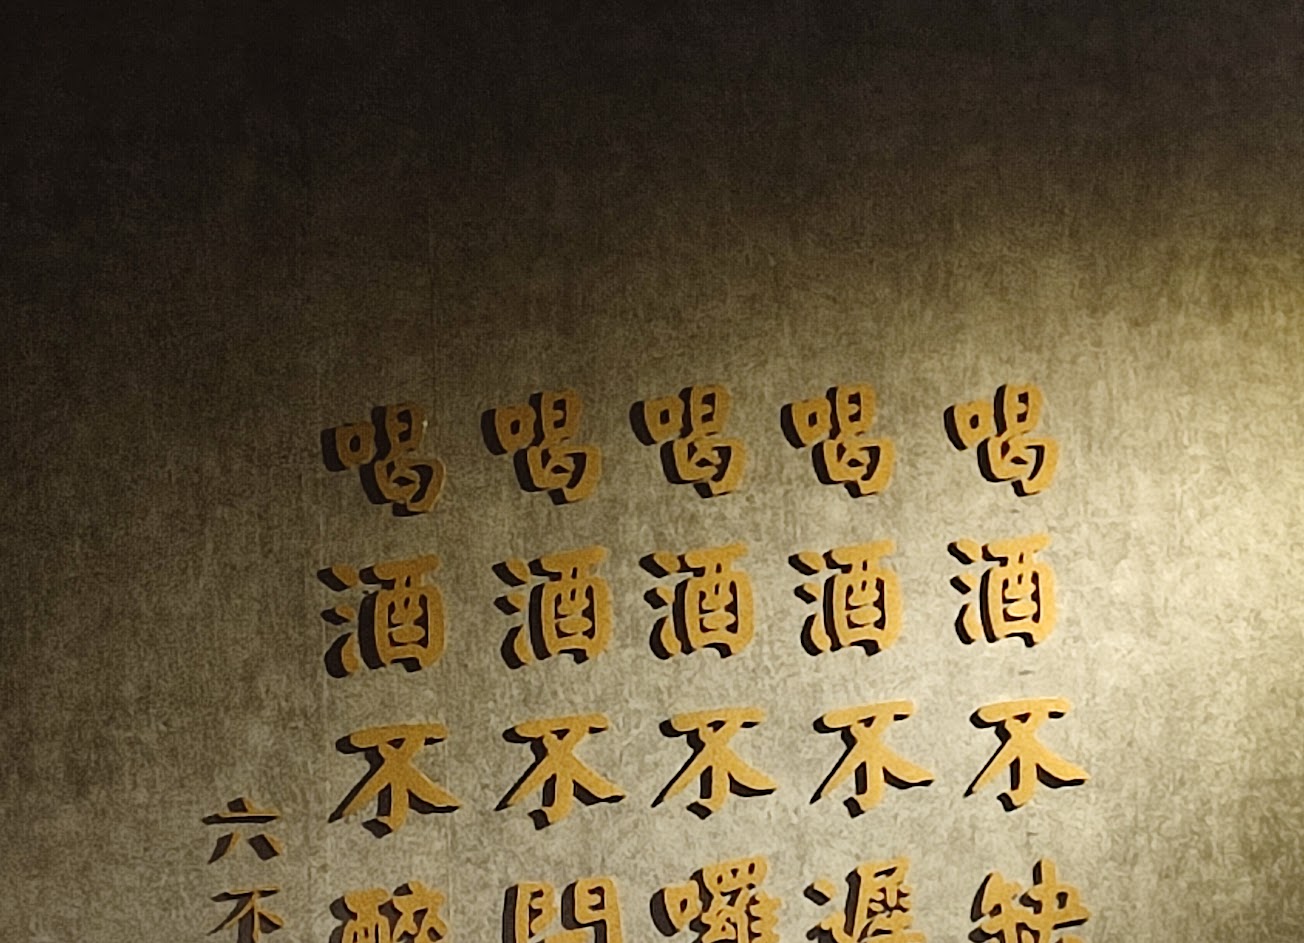 喝酒不缺
喝酒不遲
喝酒不囉
喝酒不
喝酒不醉
六不